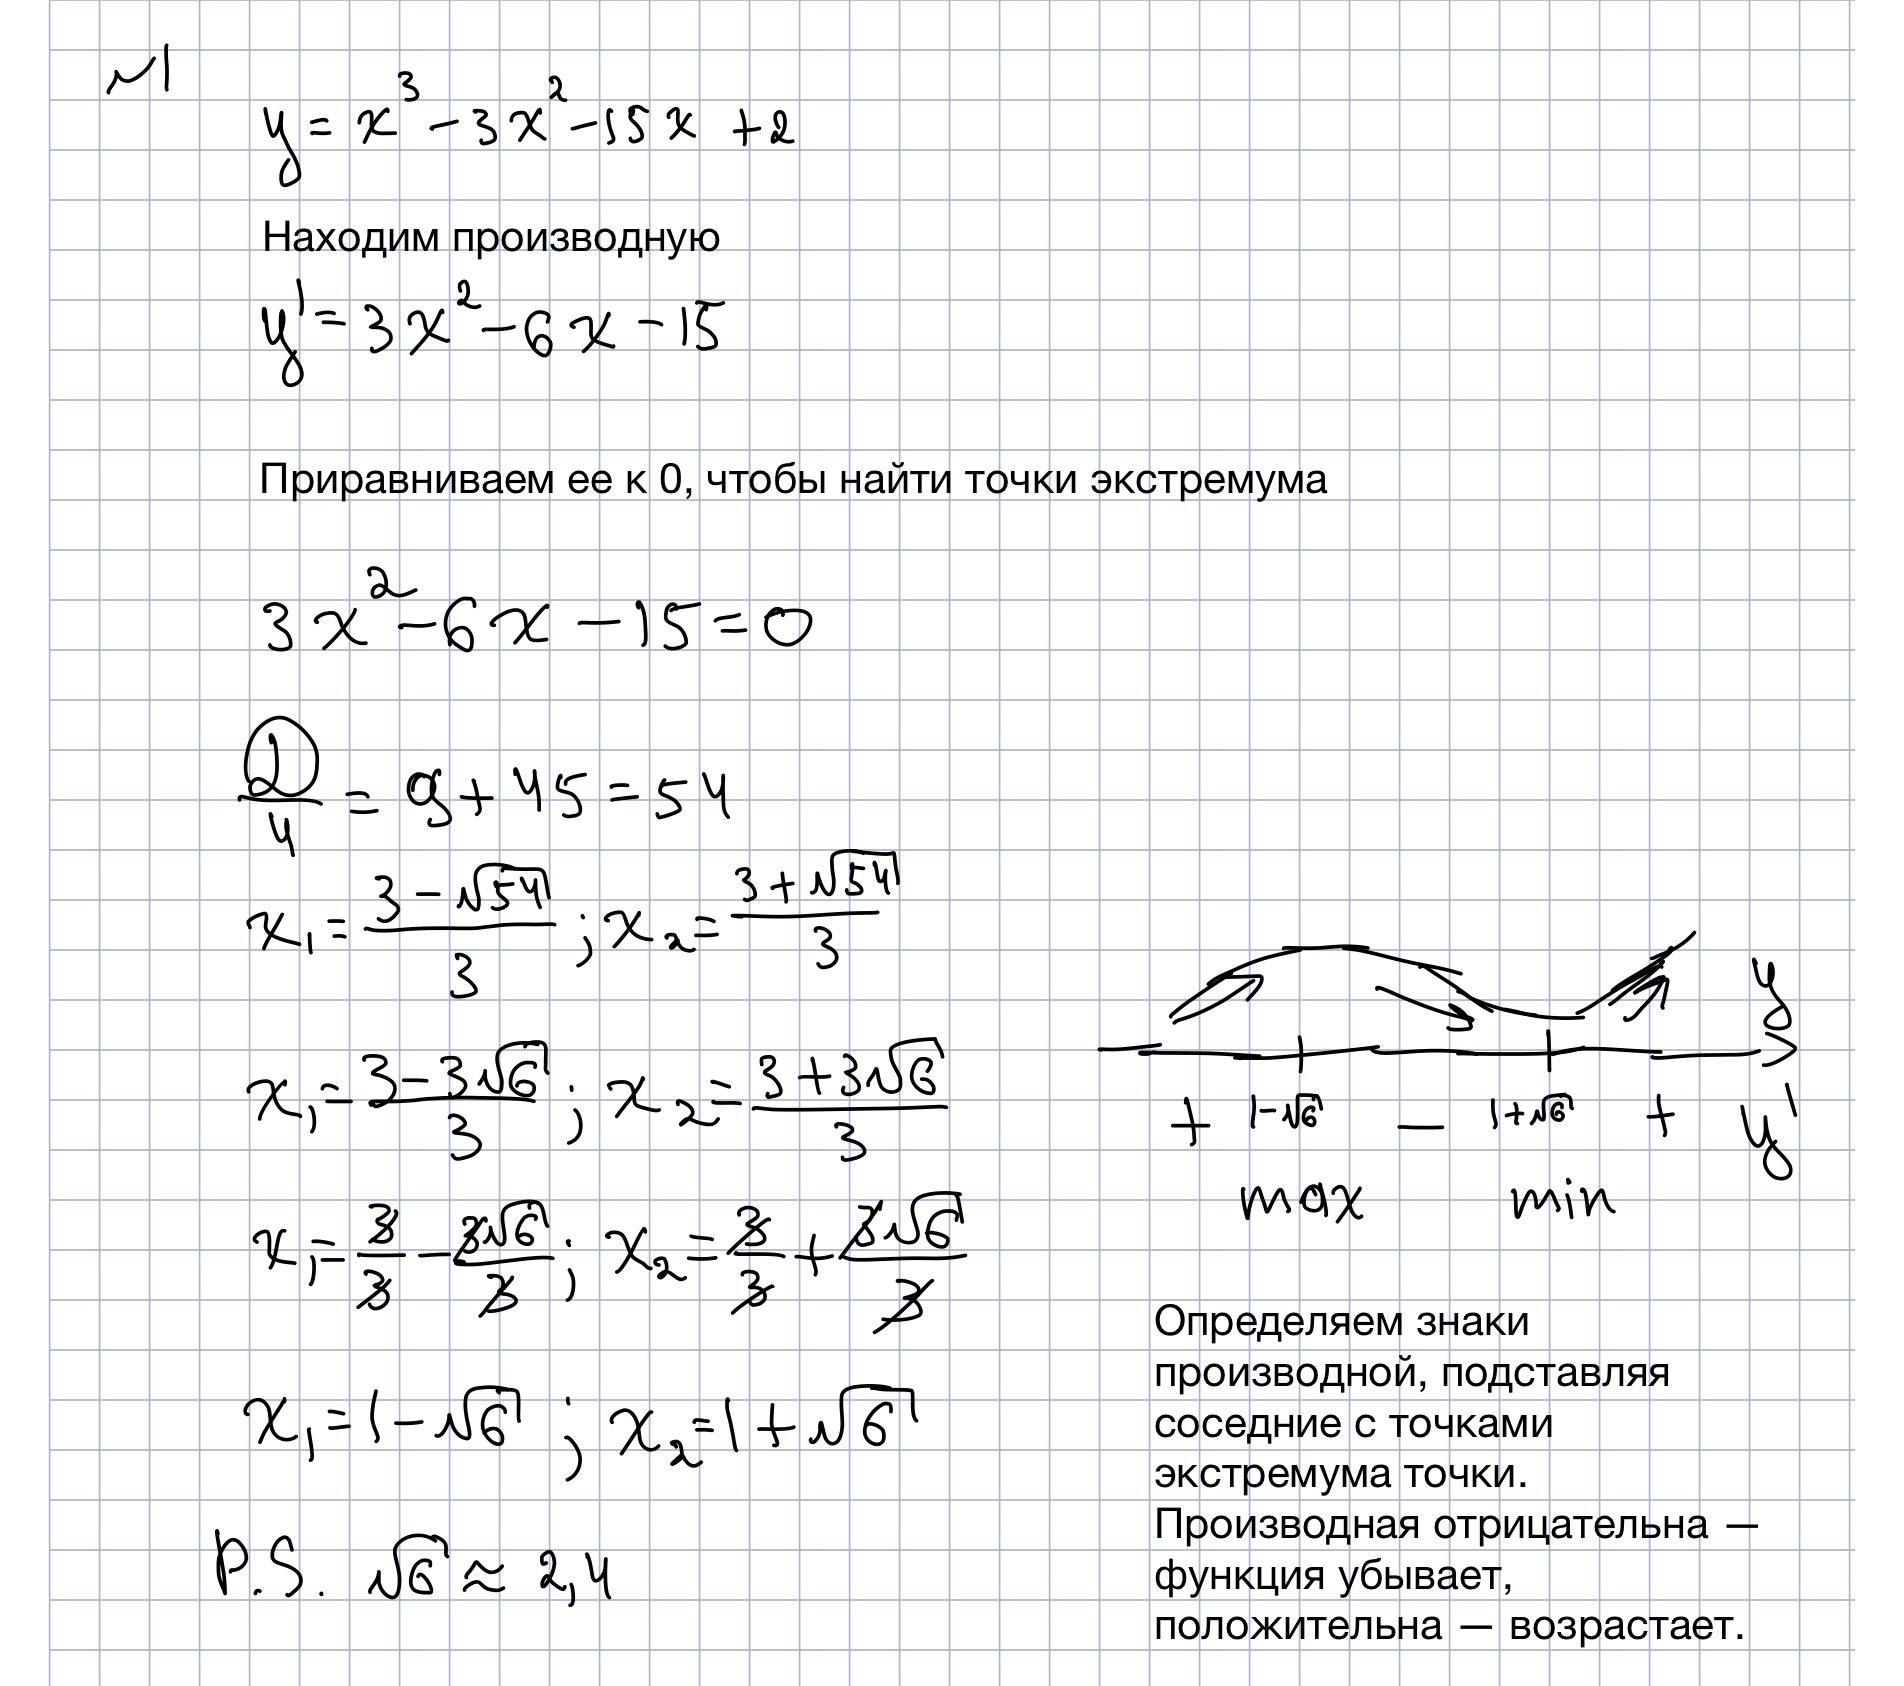 №1
y = x³ - 3x² - 15x + 2
Находим производную
y' = 3x² - 6x - 15
Приравниваем ее к 0, чтобы найти точки экстремума
3x² - 6x - 15 = 0
D/4 = 9 + 45 = 54
x₁ = (3 - √54)/3 ; x₂ = (3 + √54)/3
x₁ = (3 - 3√6)/3 ; x₂ = (3 + 3√6)/3
x₁ = 3/3 - 3√6/3 ; x₂ = 3/3 + 3√6/3
x₁ = 1 - √6 ; x₂ = 1 + √6
P.S. √6 ≈ 2,4
y
+ 1-√6 — 1+√6 + y'
max min
Определяем знаки
производной, подставляя
соседние с точками
экстремума точки.
Производная отрицательна —
функция убывает,
положительна — возрастает.